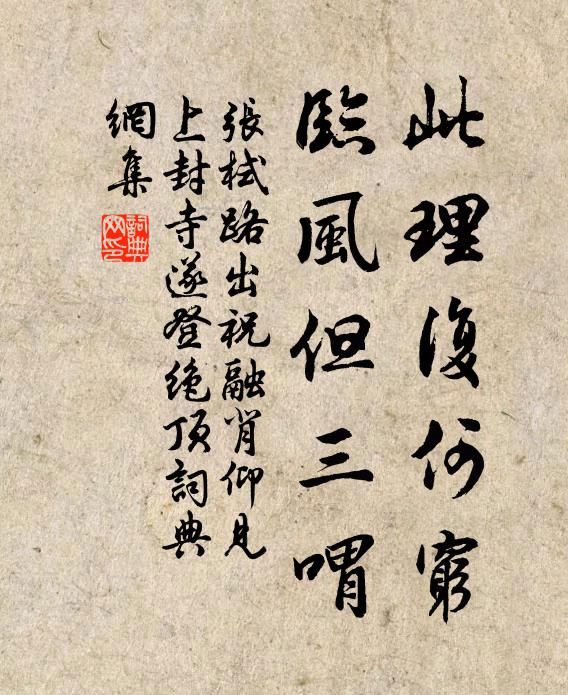 此理復何窮
臨風但三喟
張栻路出祝融肖仰見
上封寺遂登絶頂詞典
網集
詞典
网印